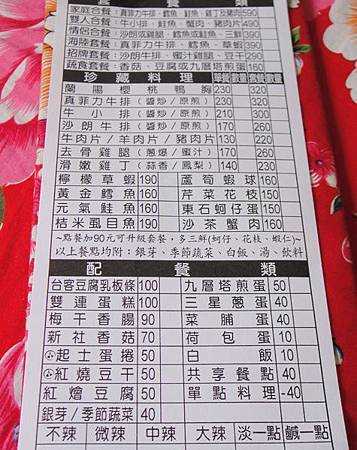 套餐
家庭合餐：真菲力牛排、鱈魚、鮭魚、雞丁及豬肉590
雙人合餐：牛小排、鮭魚、蟹肉、豬肉片490
情侶合餐：沙朗或雞腿、鱈魚或
海陸套餐：真菲力牛排、鱈魚、草蝦390
招牌套餐：沙朗牛排、蜜汁雞腿、豆干290
蔬食套餐：香菇、豆腐或九層塔煎蛋260
珍藏料理 單餐數量 套餐數量
蘭陽櫻桃鴨胸 230 320
真菲力牛排(醬炒/原煎) 230 320
牛小排(醬炒/原煎) 210 300
沙朗牛排(醬炒/原煎) 170 260
牛肉片/羊肉片/豬肉片 130 220
去骨雞腿(蔥爆/蜜汁) 170 260
滑嫩雞丁(蒜香/鳳梨) 140 230
檸檬草蝦 190 蘆筍蝦球 160
黃金鱈魚 160 芹菜花枝 150
元氣鮭魚 160 東石蚵仔蛋 150
桔米虱目魚 190 沙茶蟹肉 160
~點餐加90元可升級套餐，多三鮮(蚵仔、花枝、蝦仁)~
以上餐點均附：銀芽、季節蔬菜、白飯、湯、飲料
配餐類
台客豆腐乳板條 100 九層塔煎蛋 50
雙連蛋糕 100 三星蔥蛋 40
梅干香腸 90 菜脯蛋 40
新社香菇 70 荷包蛋 20
起士蛋捲 50 白飯 10
紅燒豆干 50 共享餐點 40
紅燴豆腐 50 單點料理 -40
銀芽/季節蔬菜 40
不辣 微辣 中辣 大辣 淡一點 鹹一點